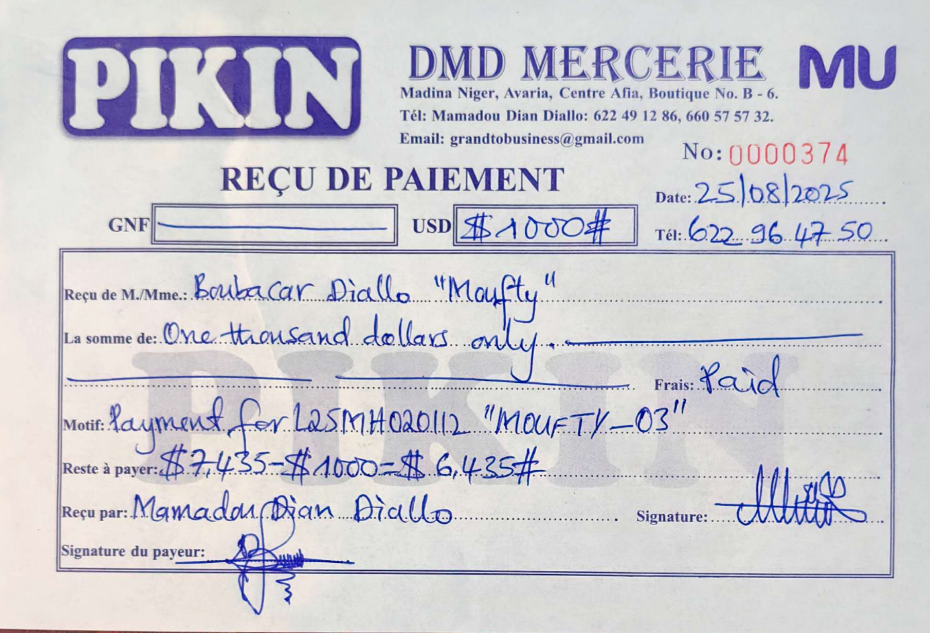 PIKIN
DMD MERCERIE
MU
Madina Niger, Avaria, Centre Afia, Boutique No. B - 6.
Tél: Mamadou Dian Diallo: 622 49 12 86, 660 57 57 32.
Email: grandtobusiness@gmail.com
No: 0000374
REÇU DE PAIEMENT
Date: 25/08/2025
GNF USD $1000#
Tél: 622 96 47 50
Reçu de M./Mme.: Boubacar Diallo "Moufty"
La somme de: One thousand dollars only.
Frais: Paid
Motif: Payment for L25MH020112 "MOUFTY-03"
Reste à payer: $7,435-$1000=$6,435#
Reçu par: Mamadou Dian Diallo Signature:
Signature du payeur:
PIKIN